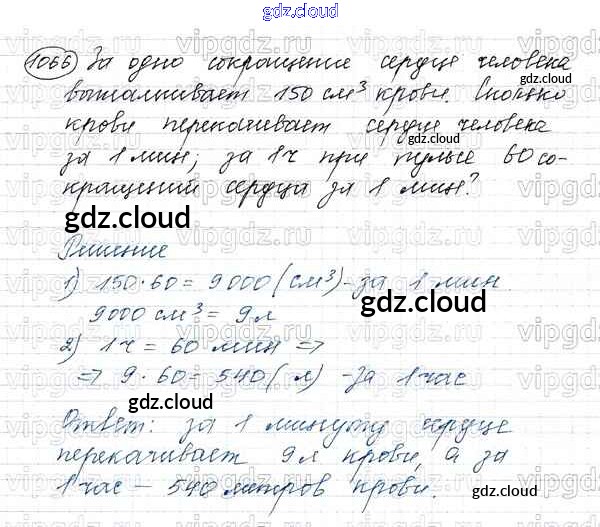 gdz.cloud
1066 За одно сокращение сердце человека
выталкивает 150 см³ крови. Сколько
крови перекачивает сердце человека
за 1 мин; за 1 ч при пульсе 60 со-
кращений сердца за 1 мин?
gdz.cloud
Решение
1) 150·60 = 9000 (см³) - за 1 мин.
9000 см³ = 9 л
2) 1 ч = 60 мин =>
=> 9·60 = 540 (л) - за 1 час
gdz.cloud
Ответ: за 1 минуту сердце
перекачивает 9 л крови, а за
1 час – 540 литров крови.
gdz.cloud